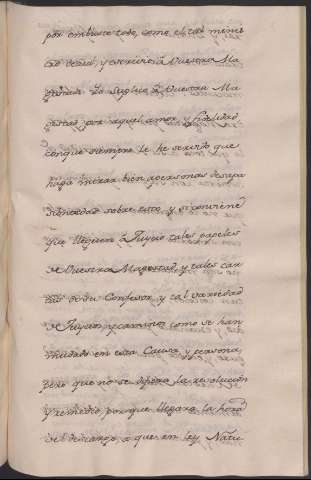 por embuste todo, como el tal mismo
lo decia, y escrivirè à Vuestra Ma
gestad. Lo suplico à Vuestra Ma
gestad por aquel amor, y fidelidad
conque siempre le he servido que
haga mirar bien apersonas desapa
sionadas sobre esto, y si conviene
que lleguen à Juycio tales papeles
de Vuestra Magestad, y tales car
tas de su Confesor, y tal variedad
de Juycios, y caminos como se han
mudado en esta Causa, y persona,
pero que no se difiera la resolucion
y remedio, porque llegara la hora
del descargo, a que en ley Natu